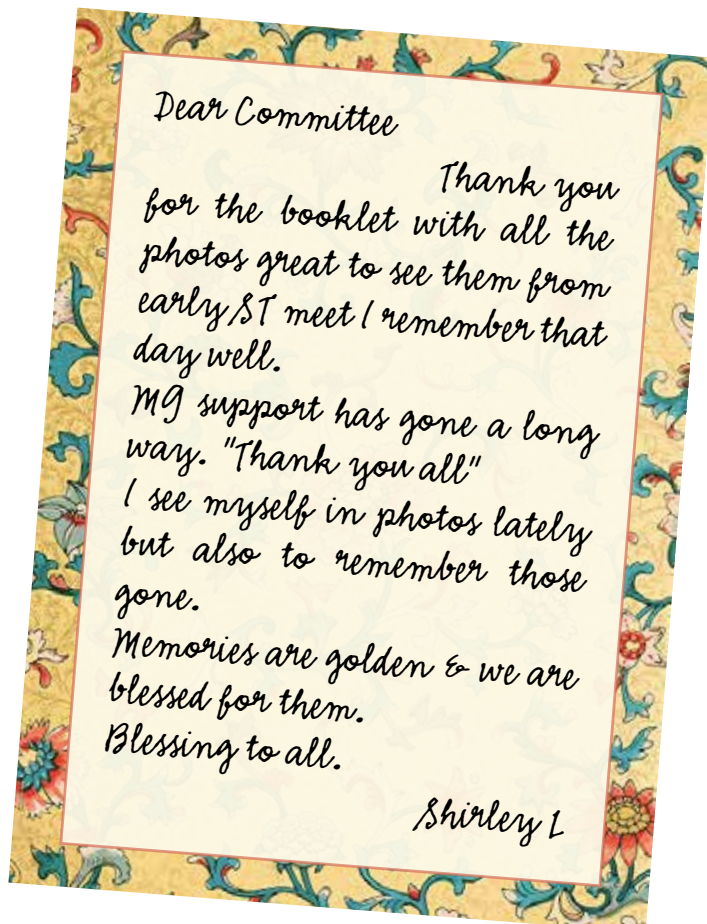 Dear Committee
Thank you
for the booklet with all the
photos great to see them from
early ST meet I remember that
day well.
MG support has gone a long
way. "Thank you all"
I see myself in photos lately
but also to remember those
gone.
Memories are golden & we are
blessed for them.
Blessing to all.
Shirley L